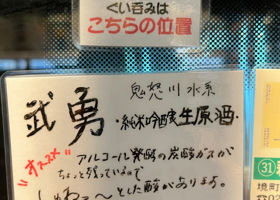 ぐい呑みは
こちらの位置
鬼怒川水系
武勇 純米吟醸生原酒
オススメ
アルコール発酵の炭酸ガスが
ちょっと残っているので
しゅわぁ〜とした酸があります。
31
境町